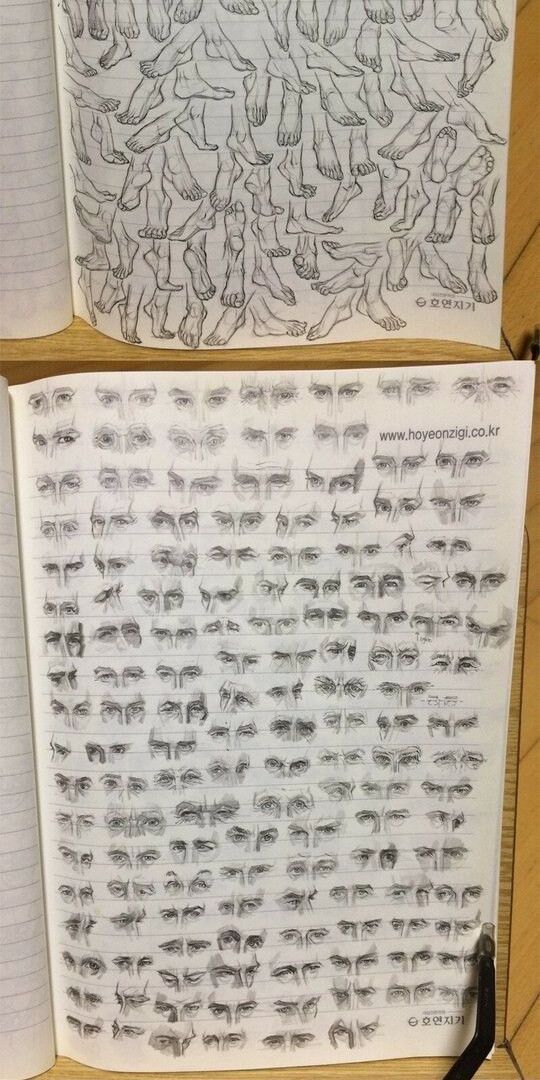 호연지기
www.hoyeonzigi.co.kr
호연지기